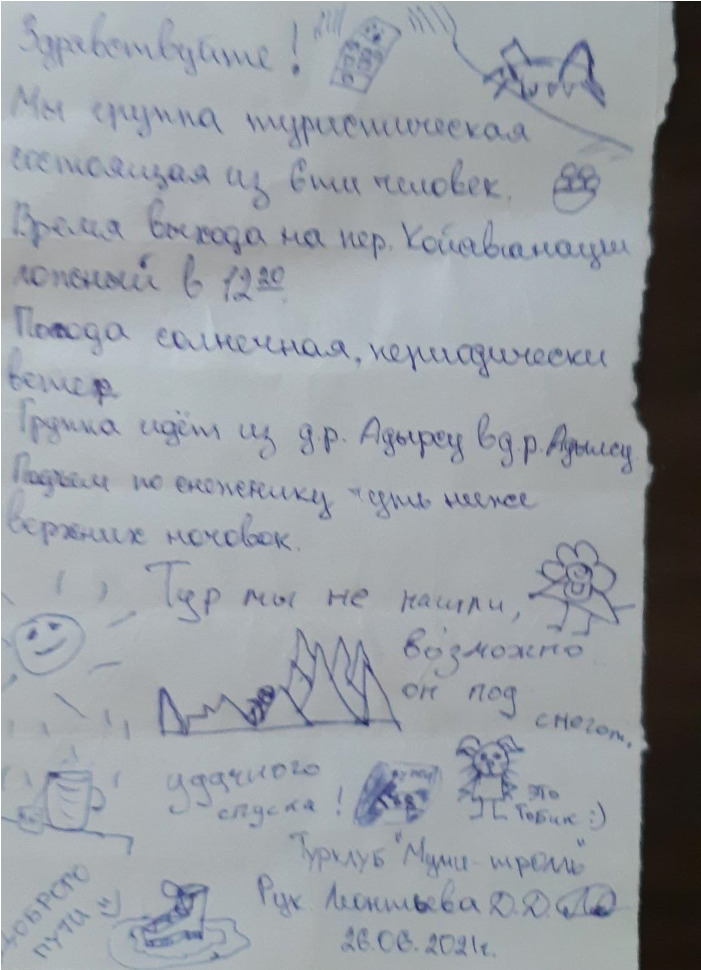 Здравствуйте!
Мы группа туристическая
состоящая из 6ти человек.
Время выхода на пер. Койавганауш
ложный в 12 20.
Погода солнечная, периодически
ветер
Группа идёт из д.р. Адырсу в д.р. Адылсу
Подъем по снежнику чуть ниже
верхних ночовок.
Тур мы не нашли,
возможно
он под
снегом.
удачного
спуска!
это
Тобик :)
Турклуб "Муми-тролль"
Рук Леонтьева Д.Д.
26.06.2021г.
ДОБРОГО
ПУТИ :)